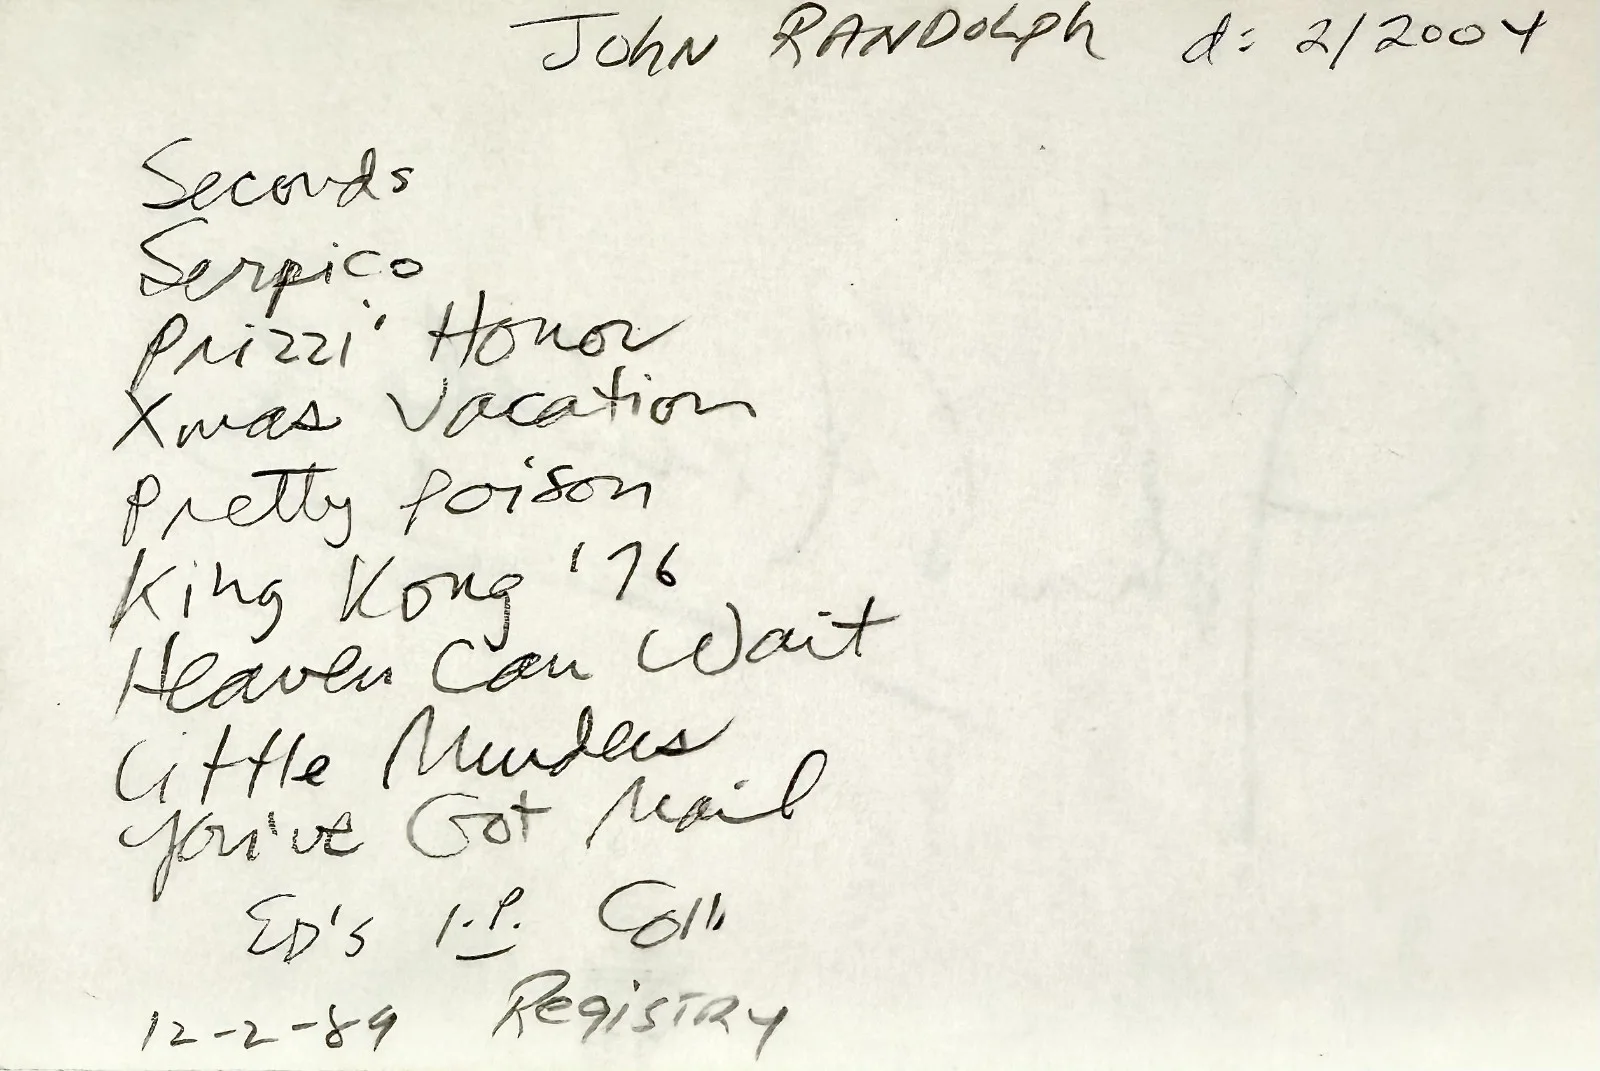 John Randolph d: 2/2004
Seconds
Serpico
Prizzi' Honor
Xmas Vacation
Pretty Poison
King Kong '76
Heaven Can Wait
Little Murders
You've Got Mail
ED's I.P. Coll
12-2-89 Registry